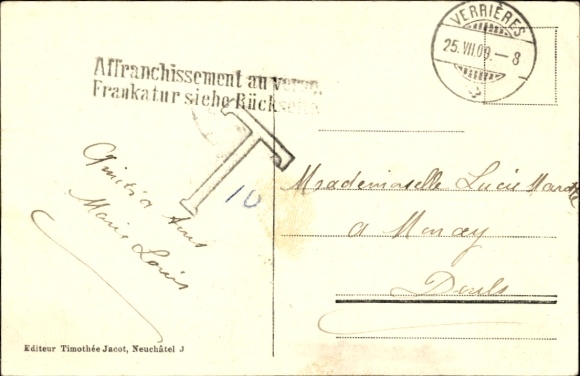 VERRIÈRES
25. VII. 09. – 8
Affranchissement au verso.
Frankatur siehe Rückseite.
T
10
Marie Louis
Mademoiselle Lucie
a
Doubs
Editeur Timothée Jacot, Neuchâtel J